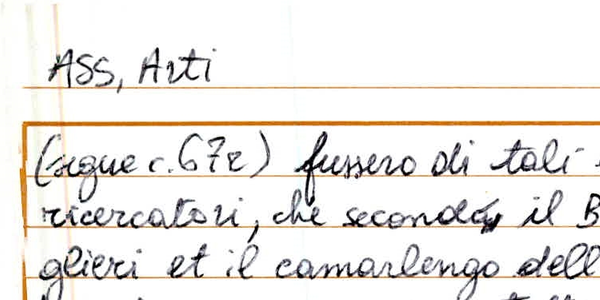 ASS, Arti
(segue c. 67r) fussero di tali
ricercatori, che secondo il B
glieri et il camarlengo dell